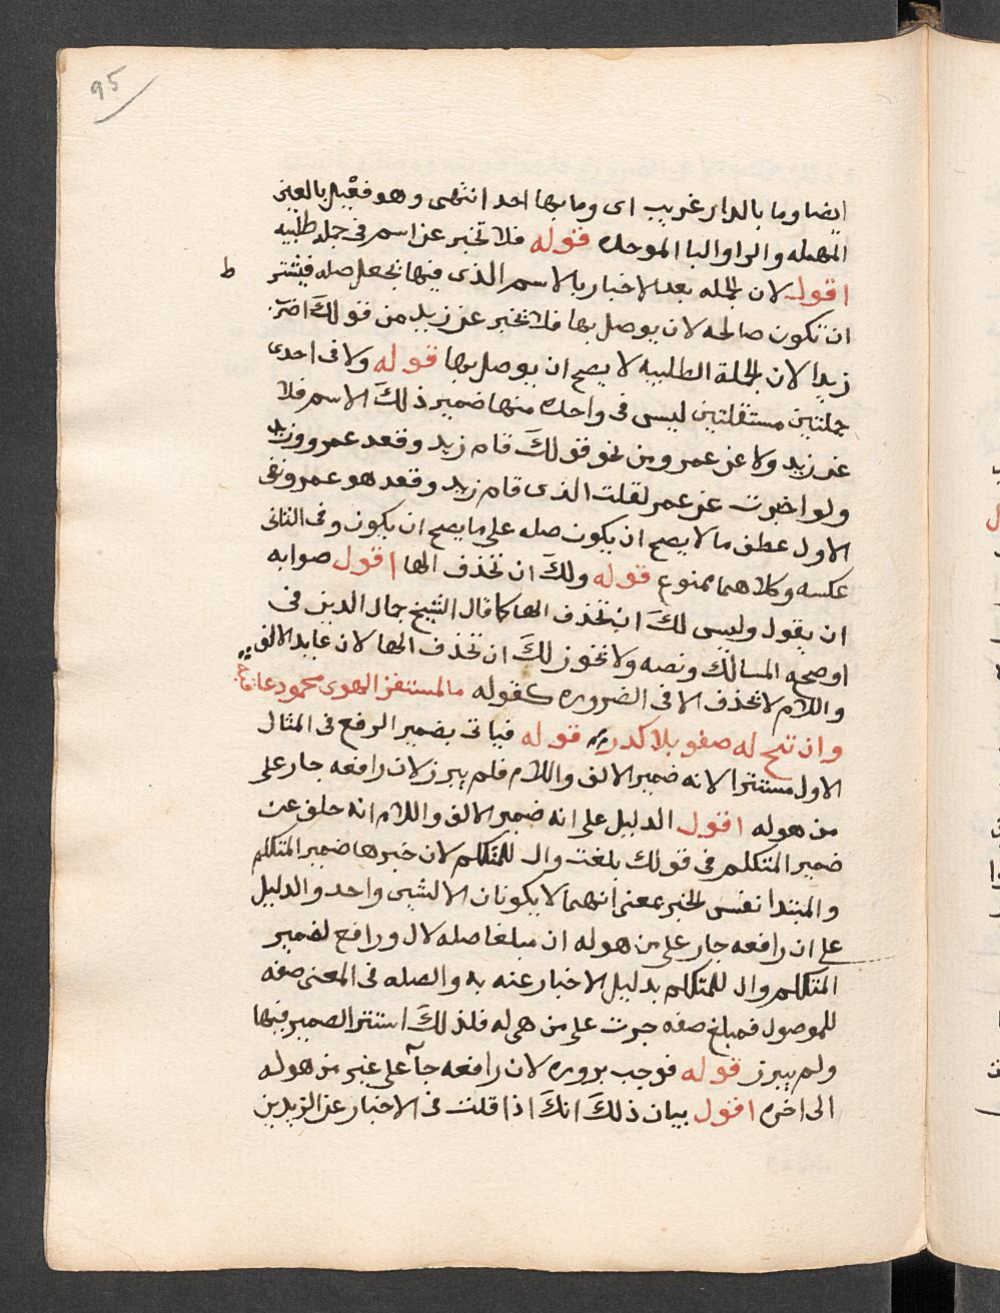 95
ايضا وما بالدار غريب اى وما بها احد انتهى وهو فعيل بالعين
المهمله والرا والبا الموحده قوله فلا تخبر عن اسم فى جملة طلبيه
اقول لان الجمله بعد الاخبار بالاسم الذى فيها تجعل صله فيشتر ط
ان تكون صالحه لان يوصل بها فلا تخبر عن زيد من قولك اضرب
زيدا لان الجملة الطلبيه لا يصح ان يوصل بها قوله ولا فى احدى
جملتين مستقلتين ليس فى واحده منها ضمير ذلك الاسم فلا
عن زيد ولا عن عمرو من نحو قولك قام زيد وقعد عمرو وزيد
ولو اخبرت عن عمر لقلت الذى قام زيد وقعد هو عمرو ففى
الاول عطف ما لا يصح ان يكون صله على ما يصح ان يكون وفى الثانى
عكسه وكلاهما ممنوع قوله ولك ان تحذف الها اقول صوابه
ان يقول وليس لك ان تحذف الها كما قال الشيخ جمال الدين فى
اوضحه المسالك ونصه ولا تجوز لك ان تحذف الها لان عايد الالف
واللام لا تحذف الا فى الضروره كقوله ما المستفز الهوى محمود عاقبة
وان تتح له صفو بلا كدر قوله فياتى بضمير الرفع فى المثال
الاول مستترا لانه ضمير الالف واللام فلم يبرز لان رافعه جار على
من هو له اقول الدليل على انه ضمير الالف واللام انه خلف عن
ضمير المتكلم فى قولك بلغت وال للمتكلم لان خبرها ضمير المتكلم
والمبتدا نفس الخبر بمعنى انهما لا يكونان الا لشى واحد والدليل
على ان رافعه جار على من هو له ان مبلغا صله لال ورافع لضمير
المتكلم وال للمتكلم بدليل الاخبار عنه به والصله فى المعنى صفه
للموصول فمبلغ صفه جرت على من هى له فلذلك استتر الضمير فيها
ولم يبرز قوله فوجب بروزه لان رافعه جآ على غير من هو له
الى اخره اقول بيان ذلك انك اذا قلت فى الاخبار عن الزيدين